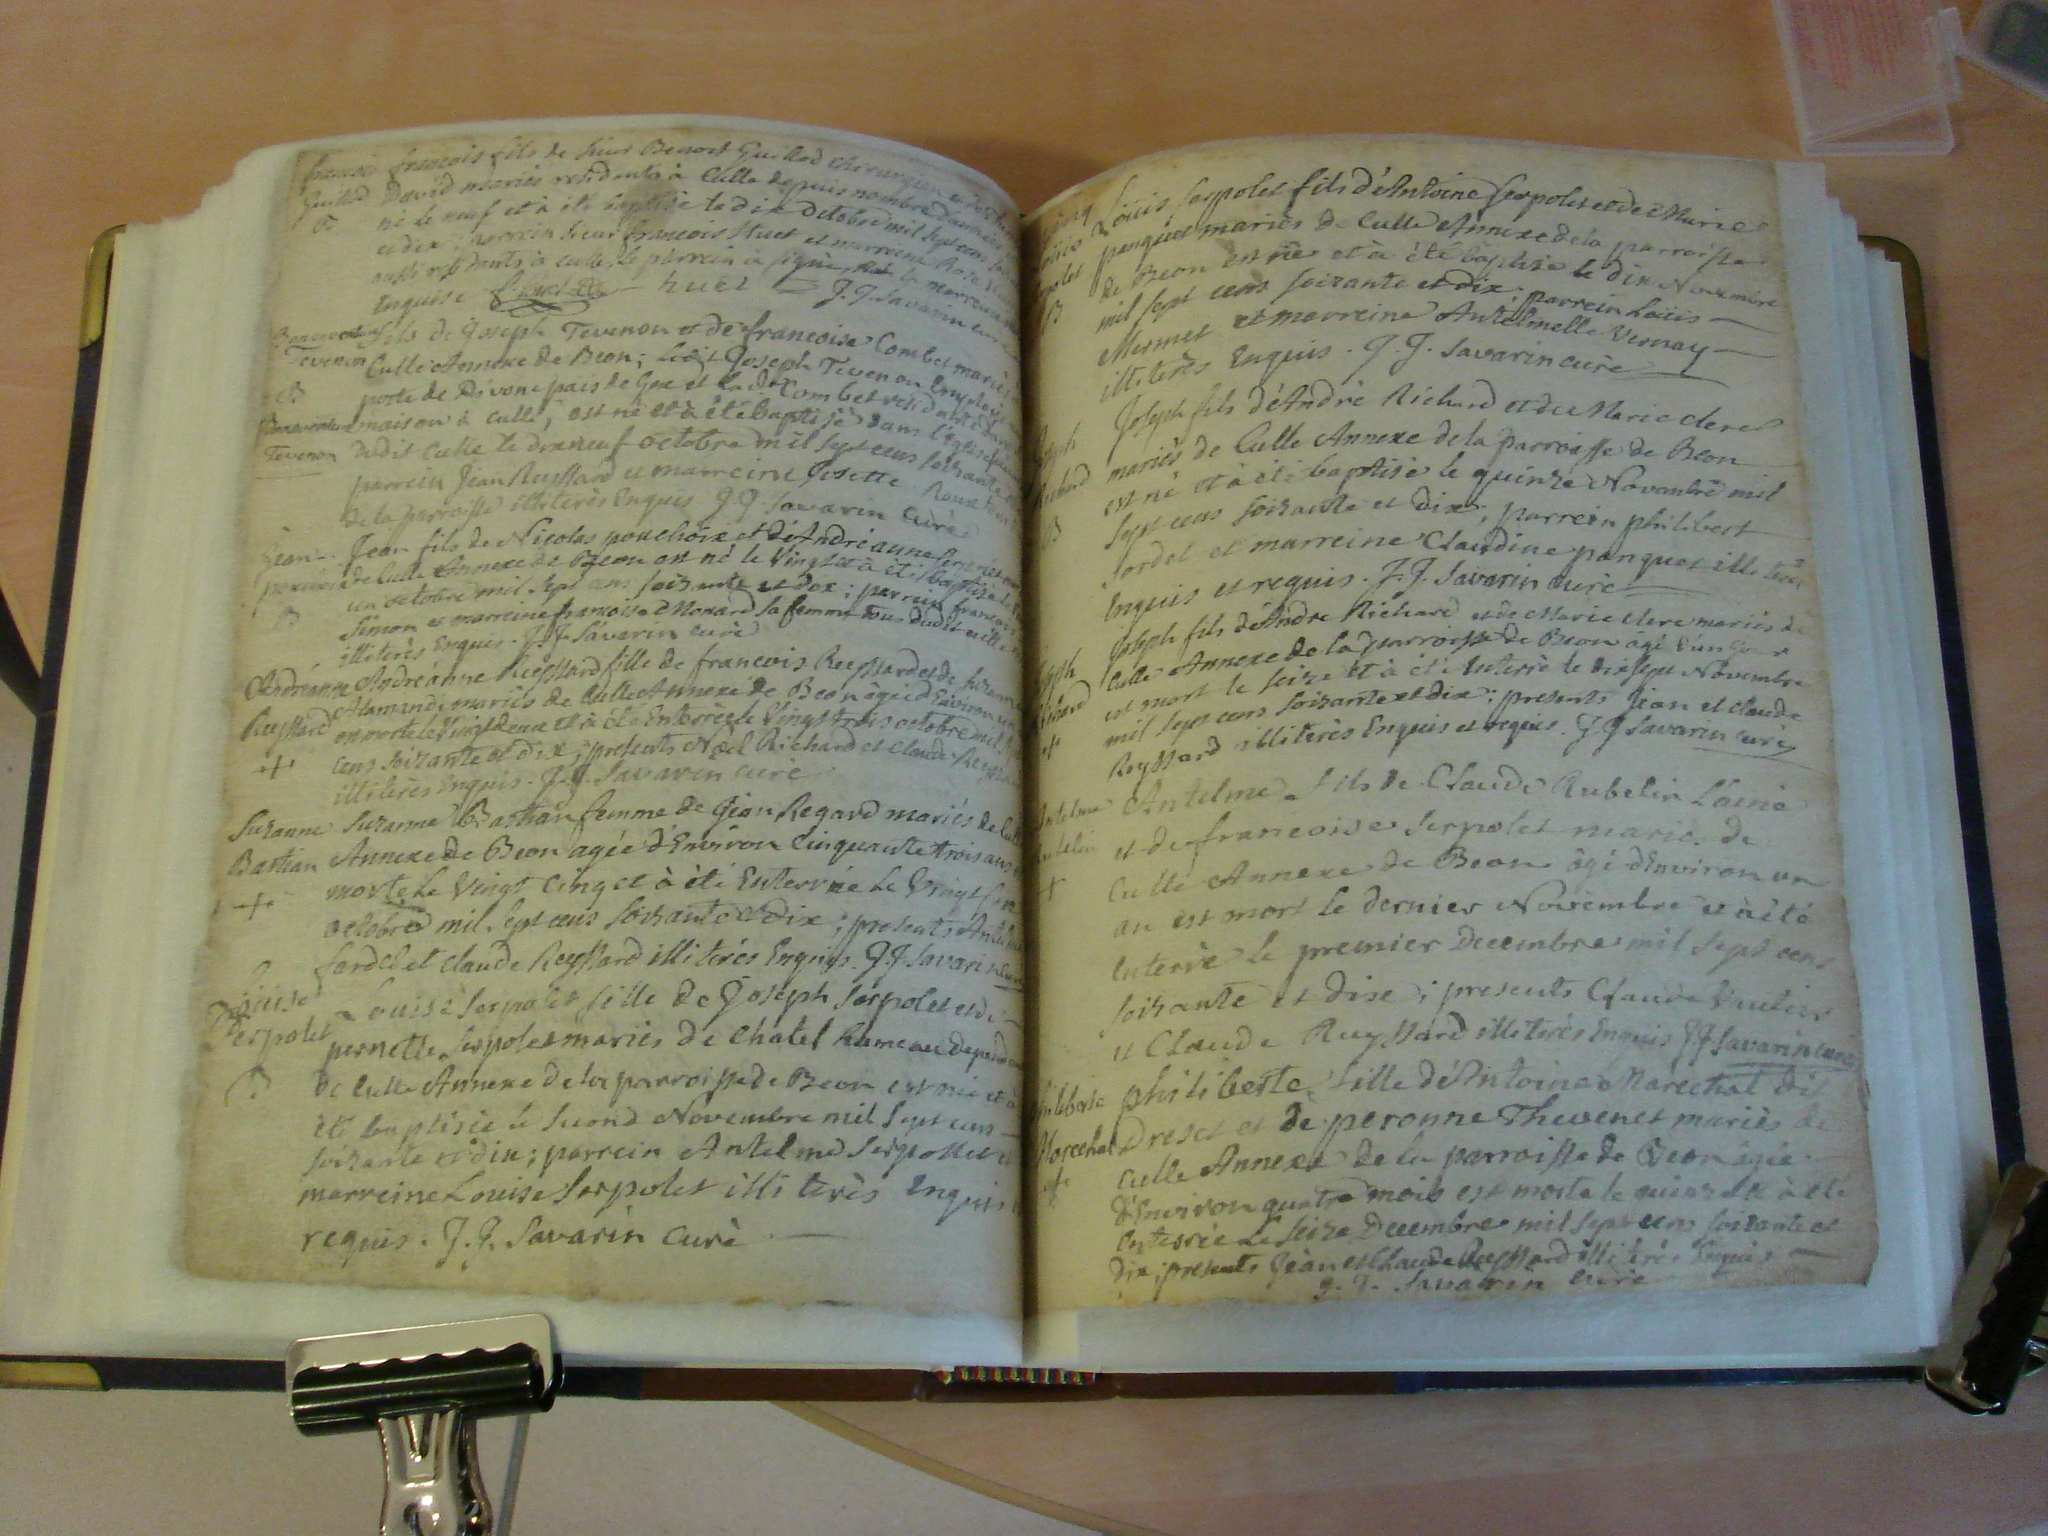 françois françois fils de sieur Benoit Guillod chirurgien et de
Guillod David mariés residents à Culle depuis nombre d'années
B né le neuf et à été baptisé le dix octobre mil sept cens
et dix; parrein sieur françois Huet et marreine
aussi residents à Culle, le parrein à signé, la marreine
Enquise huet J.J. Savarin curè
fils de Joseph Tevenon et de françoise Combet mariès
Tevenon Culle Annexe de Beon; ledit Joseph Tevenon Employé
B porte de Divone païs de Gex et lad. Combet residante dans
maison à Culle, est né et à été baptisé dans l'Eglise
Tevenon dudit Culle le dixneuf octobre mil sept cens soixante
parrein Jean Reyssard et marreine Josette Roux
de la parroisse illiterès Enquis J.J. Savarin Curè
Jean Jean fils de Nicolas pouchoix et d'Andréanne
de Culle Annexe de Beon est né le Vingt et à été baptisé le
B un octobre mil sept cens soixante et dix; parrein françois
Simon et marreine françoise Monard sa femme tous dudit Culle
illiterès Enquis. J.J. Savarin curè
Andréanne Andréanne Reyssard fille de francois Reyssard et de Suzanne
Reyssard Alamand mariès de Culle Annexe de Beon âgée d'Environ un
+ est morte le Vingt deux et à été Enterrée le Vingt trois octobre mil
cens soixante et dix; presents Noèl Richard et Claude Reyssard
illiterès Enquis. J.J. Savarin curè
Suzanne Suzanne Bastian femme de Jean Regard mariés de
Bastian Annexe de Beon agée d'Environ Cinquante trois ans
+ morte Le Vingt Cinq et à été Enterrée Le Vingt
octobre mil sept cens soixante et dix; presents
fordel et claude Reyssard illiterès Enquis. J.J. Savarin
Loüise Louise Serpolet fille de Joseph Serpolet et de
Serpolet pernette Serpolet mariès de Chatel hameau
B de Culle Annexe de la parroisse de Beon est née et à
été baptisée le second Novembre mil sept cens
soixante et dix; parrein Antelme Serpollet et
marreine Louise Serpolet illiterès Enquis
requis. J.J. Savarin Curè
Loüis Serpolet fils d'Antoine Serpolet et de Marie
panquet mariès de Culle Annexe de la parroisse
de Beon est né et à été baptisé le dix Novembre
B mil sept cens soixante et dix; parrein Loüis
Mermet et marreine Antelmelle Vernay
illiterès Enquis. J.J. Savarin curè
Joseph fils d'Andrè Richard et de Marie clerc
mariès de Culle Annexe de la parroisse de Beon
Richard est né et à été baptisé le quinze Novembre mil
B sept cens soixante et dix; parrein philibert
fordel et marreine Claudine panquet
Enquis et requis. J.J. Savarin curè
Joseph fils d'Andre Richard et de Marie clerc mariès de
Culle Annexe de la parroisse de Beon âgé d'un jour
Richard est mort le seize et à été Enterré le dixsept Novembre
+ mil sept cens soixante et dix; presents Jean et claude
Reyssard illiterès Enquis et requis. J.J. Savarin curè
Antelme Antelme fils de Claude Rubelin L'ainé
et de francoise Serpolet marié de
+ Culle Annexe de Beon âgé d'Environ un
an est mort le dernier Novembre et à été
Enterré le premier Decembre mil sept cens
soixante et dix; presents Claude
et Claude Reyssard illiterès Enquis J.J. Savarin curè
philiberte philiberte fille d'Antoine Maréchal dit
Marechal et de peronne Thevenet mariès de
+ Culle Annexe de la parroisse de Beon âgée
d'Environ quatre mois est morte le quinze et à été
Enterrée Le seize Decembre mil sept cens soixante et
dix; presents Jean et Claude Reyssard illiterès Enquis
J.J. Savarin curè